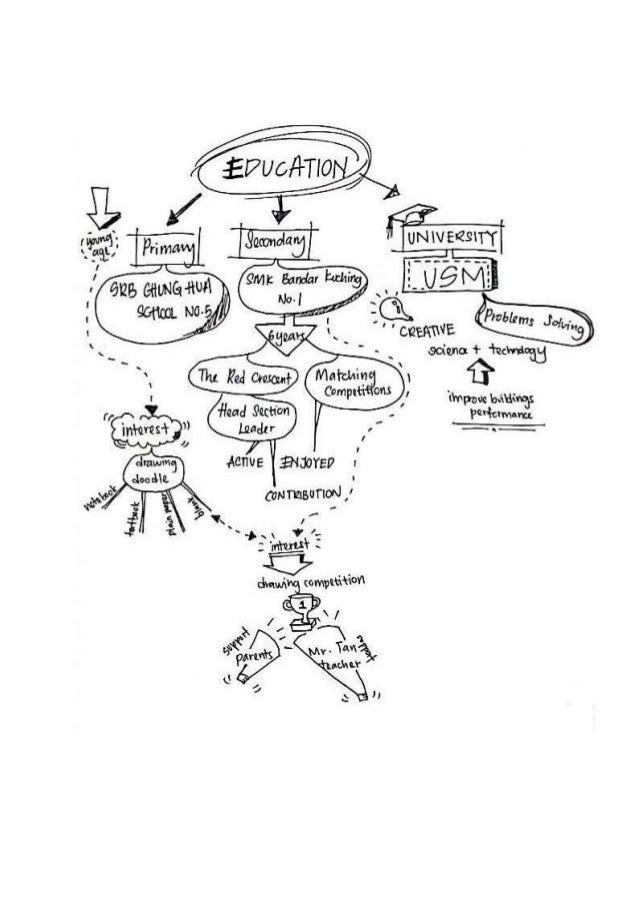 EDUCATION
young
age
Primary
SRB CHUNG HUA
SCHOOL NO.5
Secondary
SMK Bandar Kuching
No.1
6 years
The Red Crescent
Head Section
Leader
Matching
Competitions
ACTIVE
ENJOYED
CONTRIBUTION
UNIVERSITY
USM
Problems Solving
CREATIVE
science + technology
improve buildings
performance
interest
drawing
doodle
notebook
textbook
plain paper
interest
drawing competition
1
support
parents
Mr. Tan
teacher
support